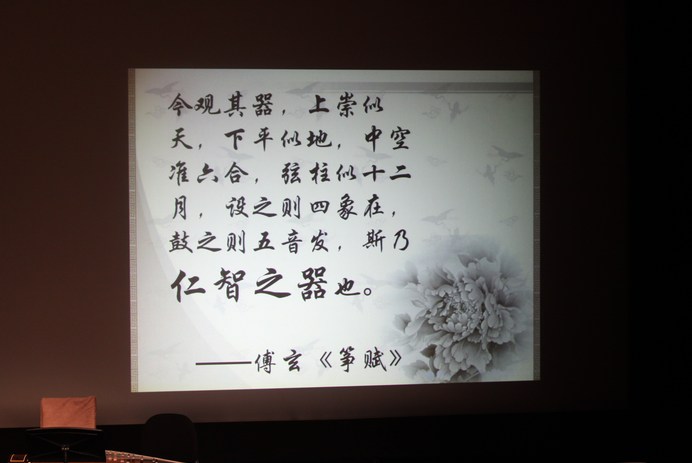 今观其器，上崇似
天，下平似地，中空
准六合，弦柱似十二
月，设之则四象在，
鼓之则五音发，斯乃
仁智之器也。
——傅玄《筝赋》